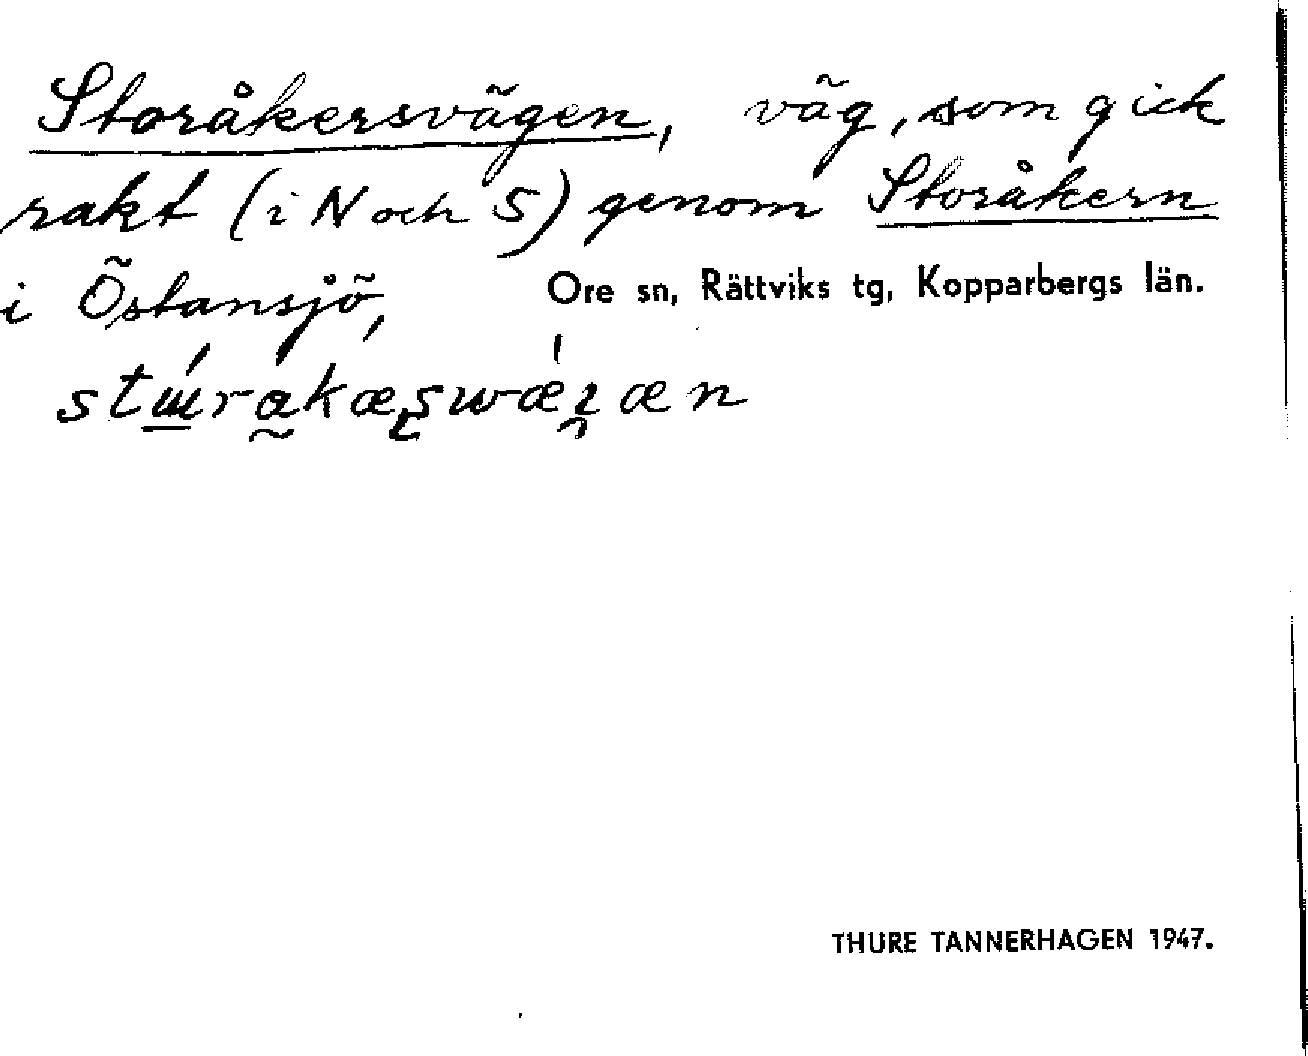 Storåkersvägen, väg, som gick
rakt (i N och S) genom Storåkern
i Östansjö, Ore sn, Rättviks tg, Kopparbergs län.
THURE TANNERHAGEN 1947.